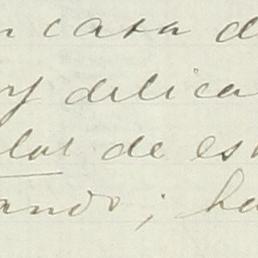 n casa d
y delica
los de es
ando; ha